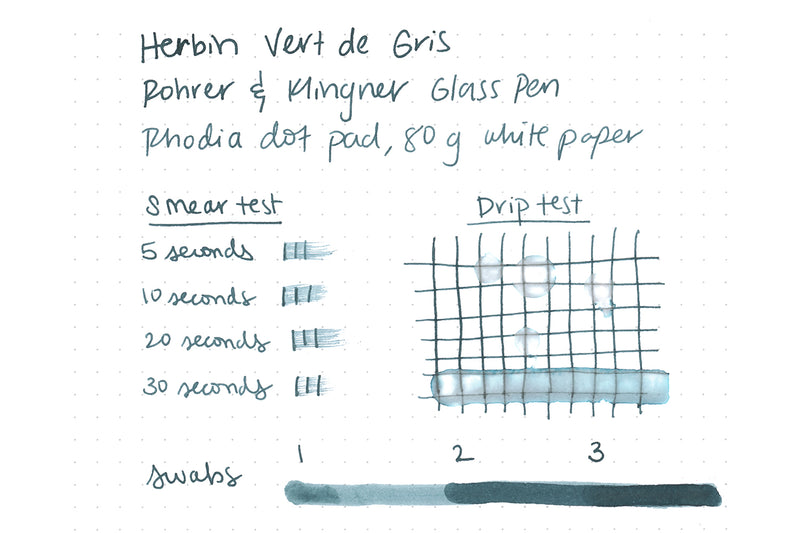 Herbin Vert de Gris
Rohrer & Klingner Glass Pen
Rhodia dot pad, 80 g white paper
Smear test
5 seconds
10 seconds
20 seconds
30 seconds
Drip test
1 2 3
swabs